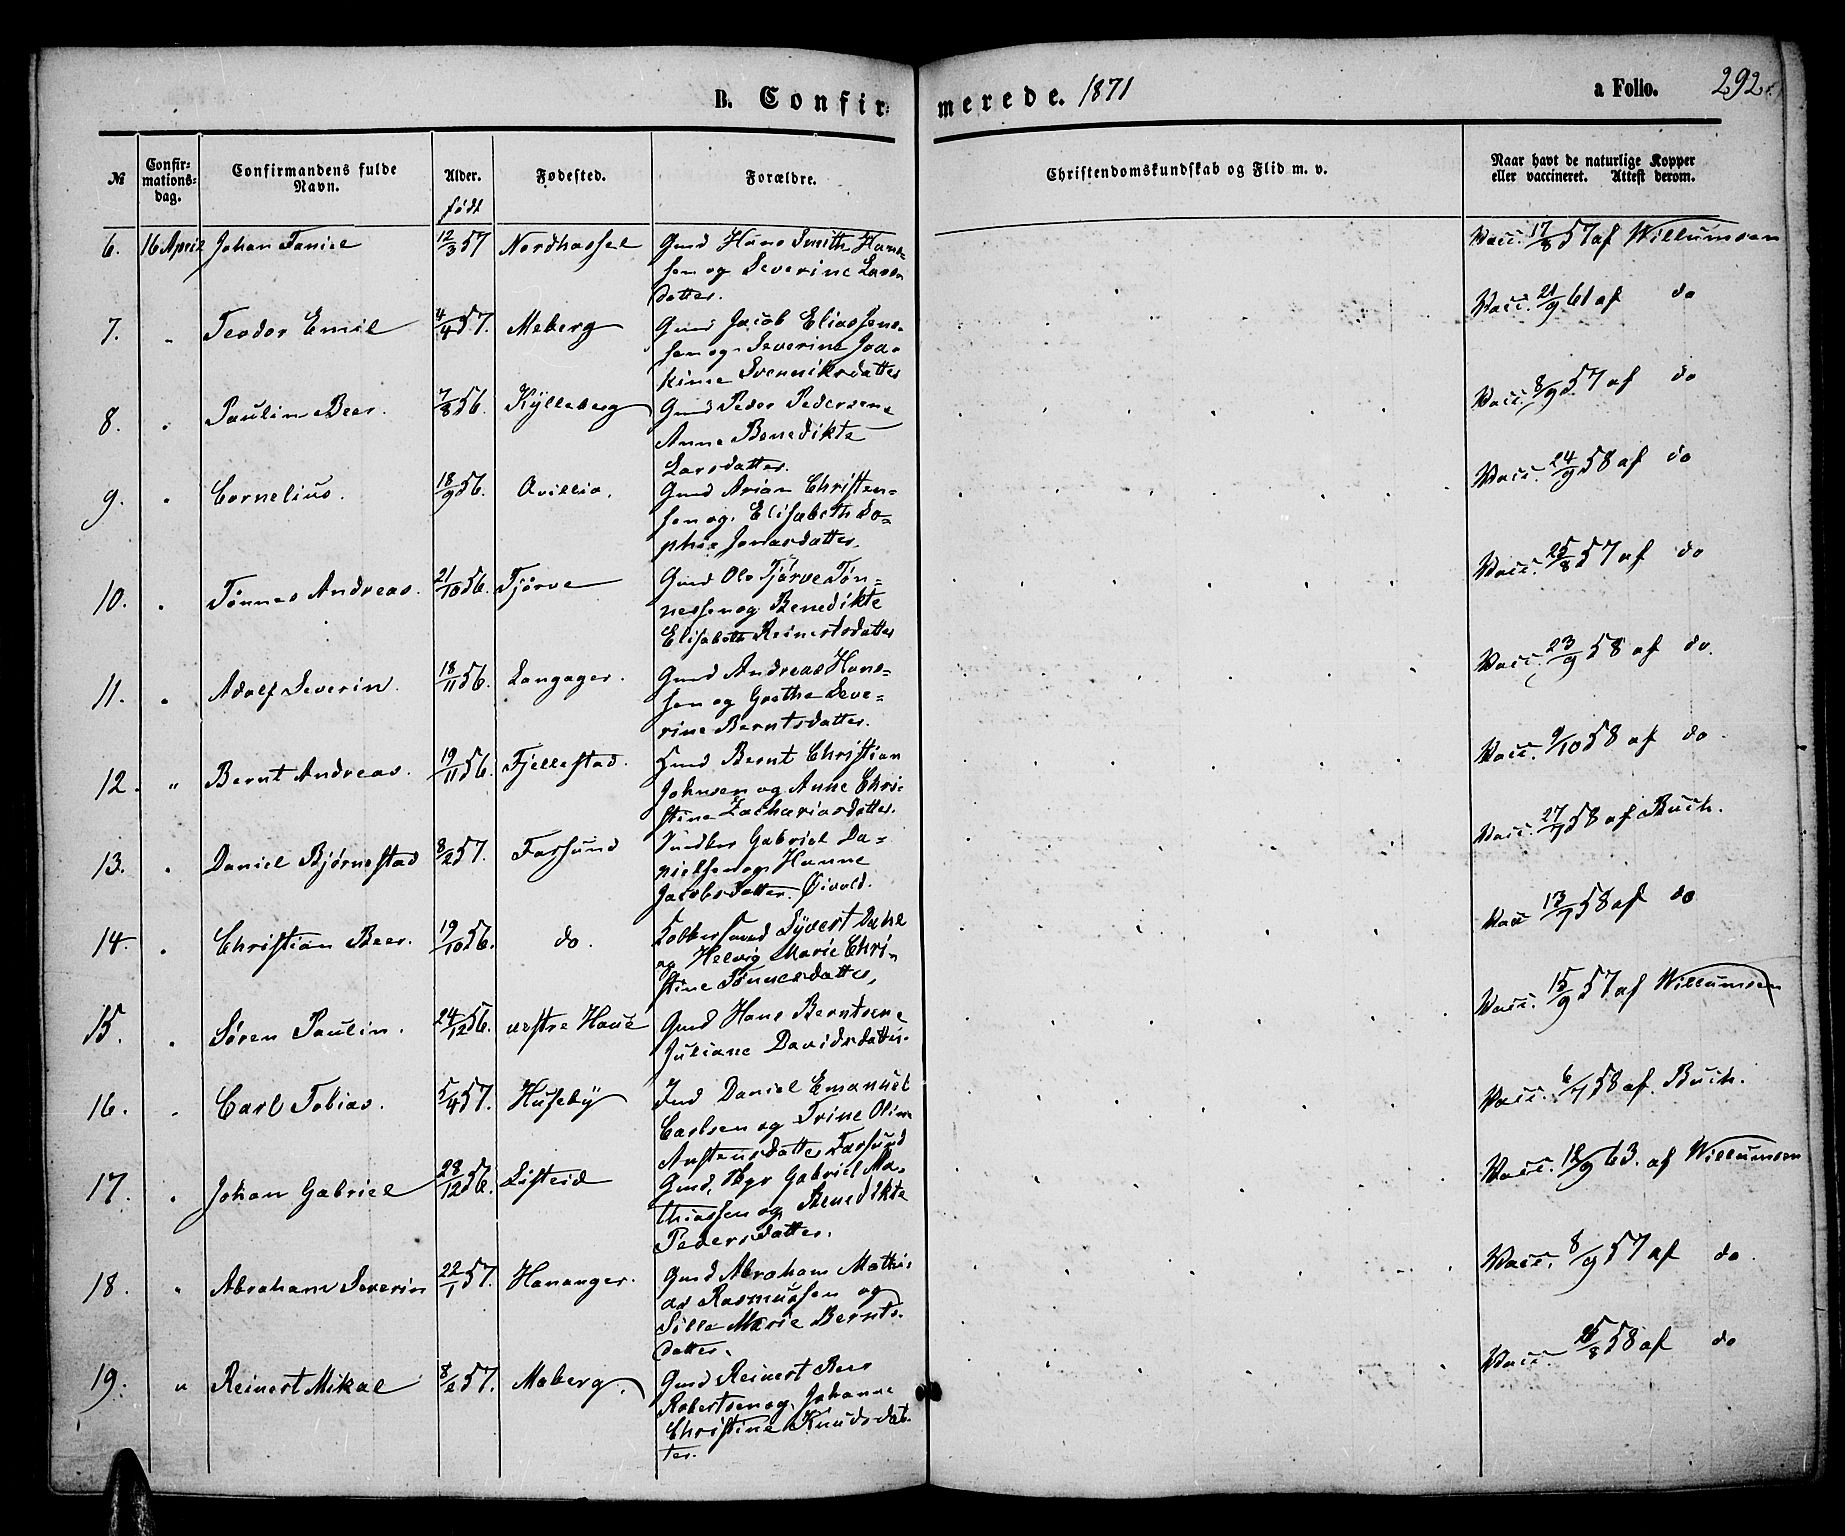 B. Confirmerede. 1871
a Folio. 292
№
Confir-
mations-
dag.
Confirmandens fulde
Navn.
Alder.
født
Fødested.
Forældre.
Christendomskundskab og Flid m. v.
Naar havt de naturlige Kopper
eller vaccineret. Attest derom.
6. 16 April Johan Daniel 12/3 57 Nordhassel Gmd Hans Smith Han-
sen og Severine Lars
datter.
Vacc. 17/8 57 af Willumsen
7. " Teodor Emil 4/4 57. Meberg Gmd Jacob Elias Jens-
sen og Severine Joa-
kime Svenniksdatter
Vacc. 21/9 61 af do
8. " Paulin Beer. 7/8 56. Kylleberg Gmd Peder Pedersen
Anne Benedikte
Larsdatter.
Vacc. 8/9 57 af do
9. " Cornelius. 18/9 56. Gmd Arian Christen-
sen og Elisabeth So-
phie Jonasdatter.
Vacc. 24/9 58 af do
10. " Tønnes Andreas. 21/10 56. Tjørve Gmd Ole Tjørve Tøn-
nessen og Benedikte
Elisabeth Reinertsdatter
Vacc. 25/8 57 af do
11. " Adolf Severin. 18/11 56. Langager. Gmd Andreas Hans-
sen og Grethe Seve-
rine Berntsdatter.
Vacc. 23/9 58 af do.
12. " Bernt Andreas. 19/11 56. Fjellestad. Bernt Christian
Johnsen og Anne Chri-
stine Zachariasdatter.
Vacc. 9/10 58 af do.
13. " Daniel Bjørnestad 8/2 57. Farsund Gabriel Da-
nielsen og Hanne
Jacobsdatter. Øivold.
Vacc. 27/7 58 af Buch.
14. " Christian Beer. 19/10 56. do. Syvert Dahl
og Helvig Marie Chri-
stine Tønnesdatter,
Vacc 13/7 58 af do
15. " Søren Paulin. 24/12 56. vestre Haue Gmd Hans Berntsen
Juliane Davidsdatter.
Vacc. 15/9 57 af Willumsen
16. " Carl Tobias. 5/4 57. Huseby Ind Daniel Emanuel
Carlsen og Trine Oline
Austensdatter Farsund
Vacc. 6/7 58 af. Buch.
17. " Johan Gabriel 28/12 56. Listeid Gmd, Gabriel Ma-
thiassen og Benedikte
Pedersdatter.
Vacc. 12/9 63. af Willumsen
18. " Abraham Severin 22/1 57. Hananger. Gmd Abraham Mathi-
as Rasmussen og
Sille Marie Bernts-
datter.
Vacc. 8/9 57 af do.
19. " Reinert Mikal 8/2 57. Meberg. Gmd Reinert Beer
Robertsen og Johanne
Christine Knudsdat-
ter.
Vacc. 25/8 58 af do